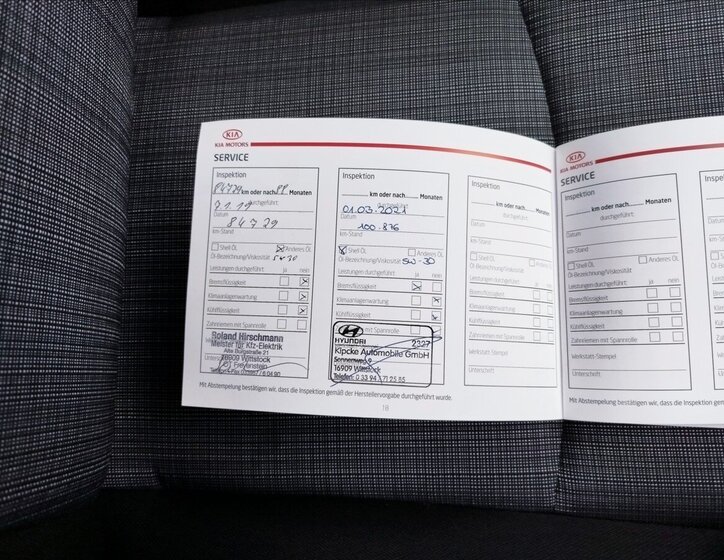 KIA
KIA MOTORS
SERVICE
Inspektion
84729 km oder nach 88 Monaten
durchgeführt:
7.1.19
Datum
84729
km-Stand
Shell Öl
Anderes Öl
Öl-Bezeichnung/Viskosität
5W30
Leistungen durchgeführt: ja nein
Bremsflüssigkeit
Klimaanlagenwartung
Kühlflüssigkeit
Zahnriemen mit Spannrolle
Roland Hirschmann
Meister für Kfz-Elektrik
Alte Burgstraße 21
16909 Wittstock
Freyenstein
Inspektion
........ km oder nach........ Monaten
durchgeführt:
01.03.2021
Datum
100.876
km-Stand
Shell Öl
Anderes Öl
Öl-Bezeichnung/Viskosität 5W-30
Leistungen durchgeführt: ja nein
Bremsflüssigkeit
Klimaanlagenwartung
Kühlflüssigkeit
mit Spannrolle
HYUNDAI
2327
Klpcke Automobile GmbH
16909 Wittstock
Telefon: 0 33 94 / 71 25 55
Inspektion
........ km oder nach........ Monaten
durchgeführt:
Datum
km-Stand
Shell Öl
Anderes Öl
Öl-Bezeichnung/Viskosität
Leistungen durchgeführt: ja nein
Bremsflüssigkeit
Klimaanlagenwartung
Kühlflüssigkeit
Zahnriemen mit Spannrolle
Werkstatt-Stempel
Unterschrift
Mit Abstempelung bestätigen wir, dass die Inspektion gemäß der Herstellervorgabe durchgeführt wurde.
18
KIA
KIA MOTORS
SERVICE
Inspektion
........ km oder nach........ Monaten
durchgeführt:
Datum
km-Stand
Shell Öl
Anderes Öl
Öl-Bezeichnung/Viskosität
Leistungen durchgeführt: ja nein
Bremsflüssigkeit
Klimaanlagenwartung
Kühlflüssigkeit
Zahnriemen mit Spannrolle
Werkstatt-Stempel
Unterschrift
Mit Abstempelung bestätigen wir, dass die Inspektion gemäß